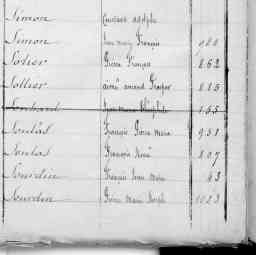 Simon
Simon Jean Marie François 900
Solier Pierre François 862
Sollier aimé amand François 883
Jean Marie 165
Soulas François Pierre Marie 951
Soulas François René 807
Sourdin François Jean Marie 63
Sourdin Pierre Marie Joseph 1023